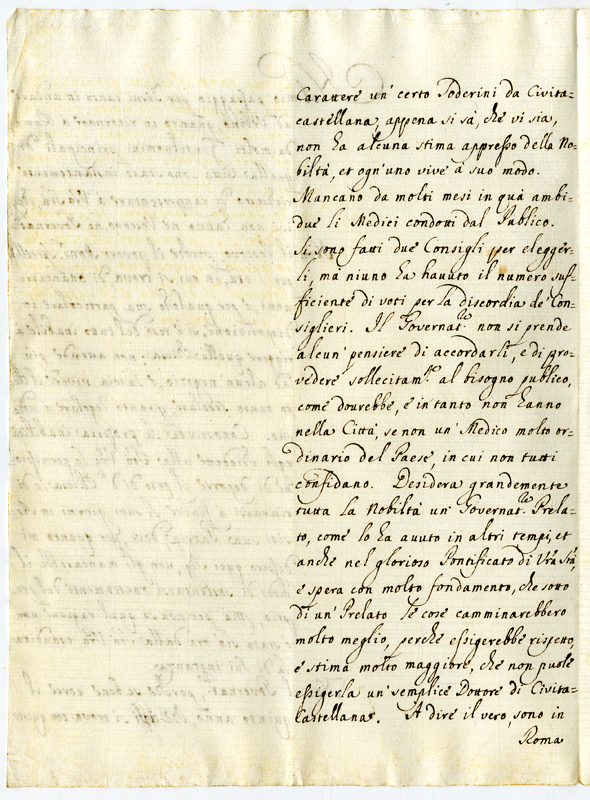 Carattere un' certo Poderini da Civita=
castellana, appena si sà, che vi sia,
non ha alcuna stima appresso della No=
biltà, et ogn'uno vive à suo modo.
Mancano da molti mesi in quà ambi=
due li Medici condotti dal Publico.
Si sono fatti due Consigli per elegger=
li, mà niuno ha hauuto il numero suf=
ficiente di voti per la discordia de' Con=
siglieri. Il Governat.re non si prende
alcun' pensiere di accordarli, e di pro=
vedere sollecitam.te al bisogno publico,
come dourebbe, e in tanto non hanno
nella Città, se non un' Medico molto or=
dinario del Paese, in cui non tutti
confidano. Desidera grandemente
tutta la Nobiltà un' Governat.re Prela=
to, come lo ha auuto in altri tempi, et
anche nel glorioso Pontificato di Vrã Stà,
e spera con molto fondamento, che sotto
di un' Prelato le cose camminarebbero
molto meglio, perche essigerebbe rispetto,
e stima molto maggiore, che non puole
essigerla un' semplice Dottore di Civita=
Castellana. A dire il vero, sono in
Roma